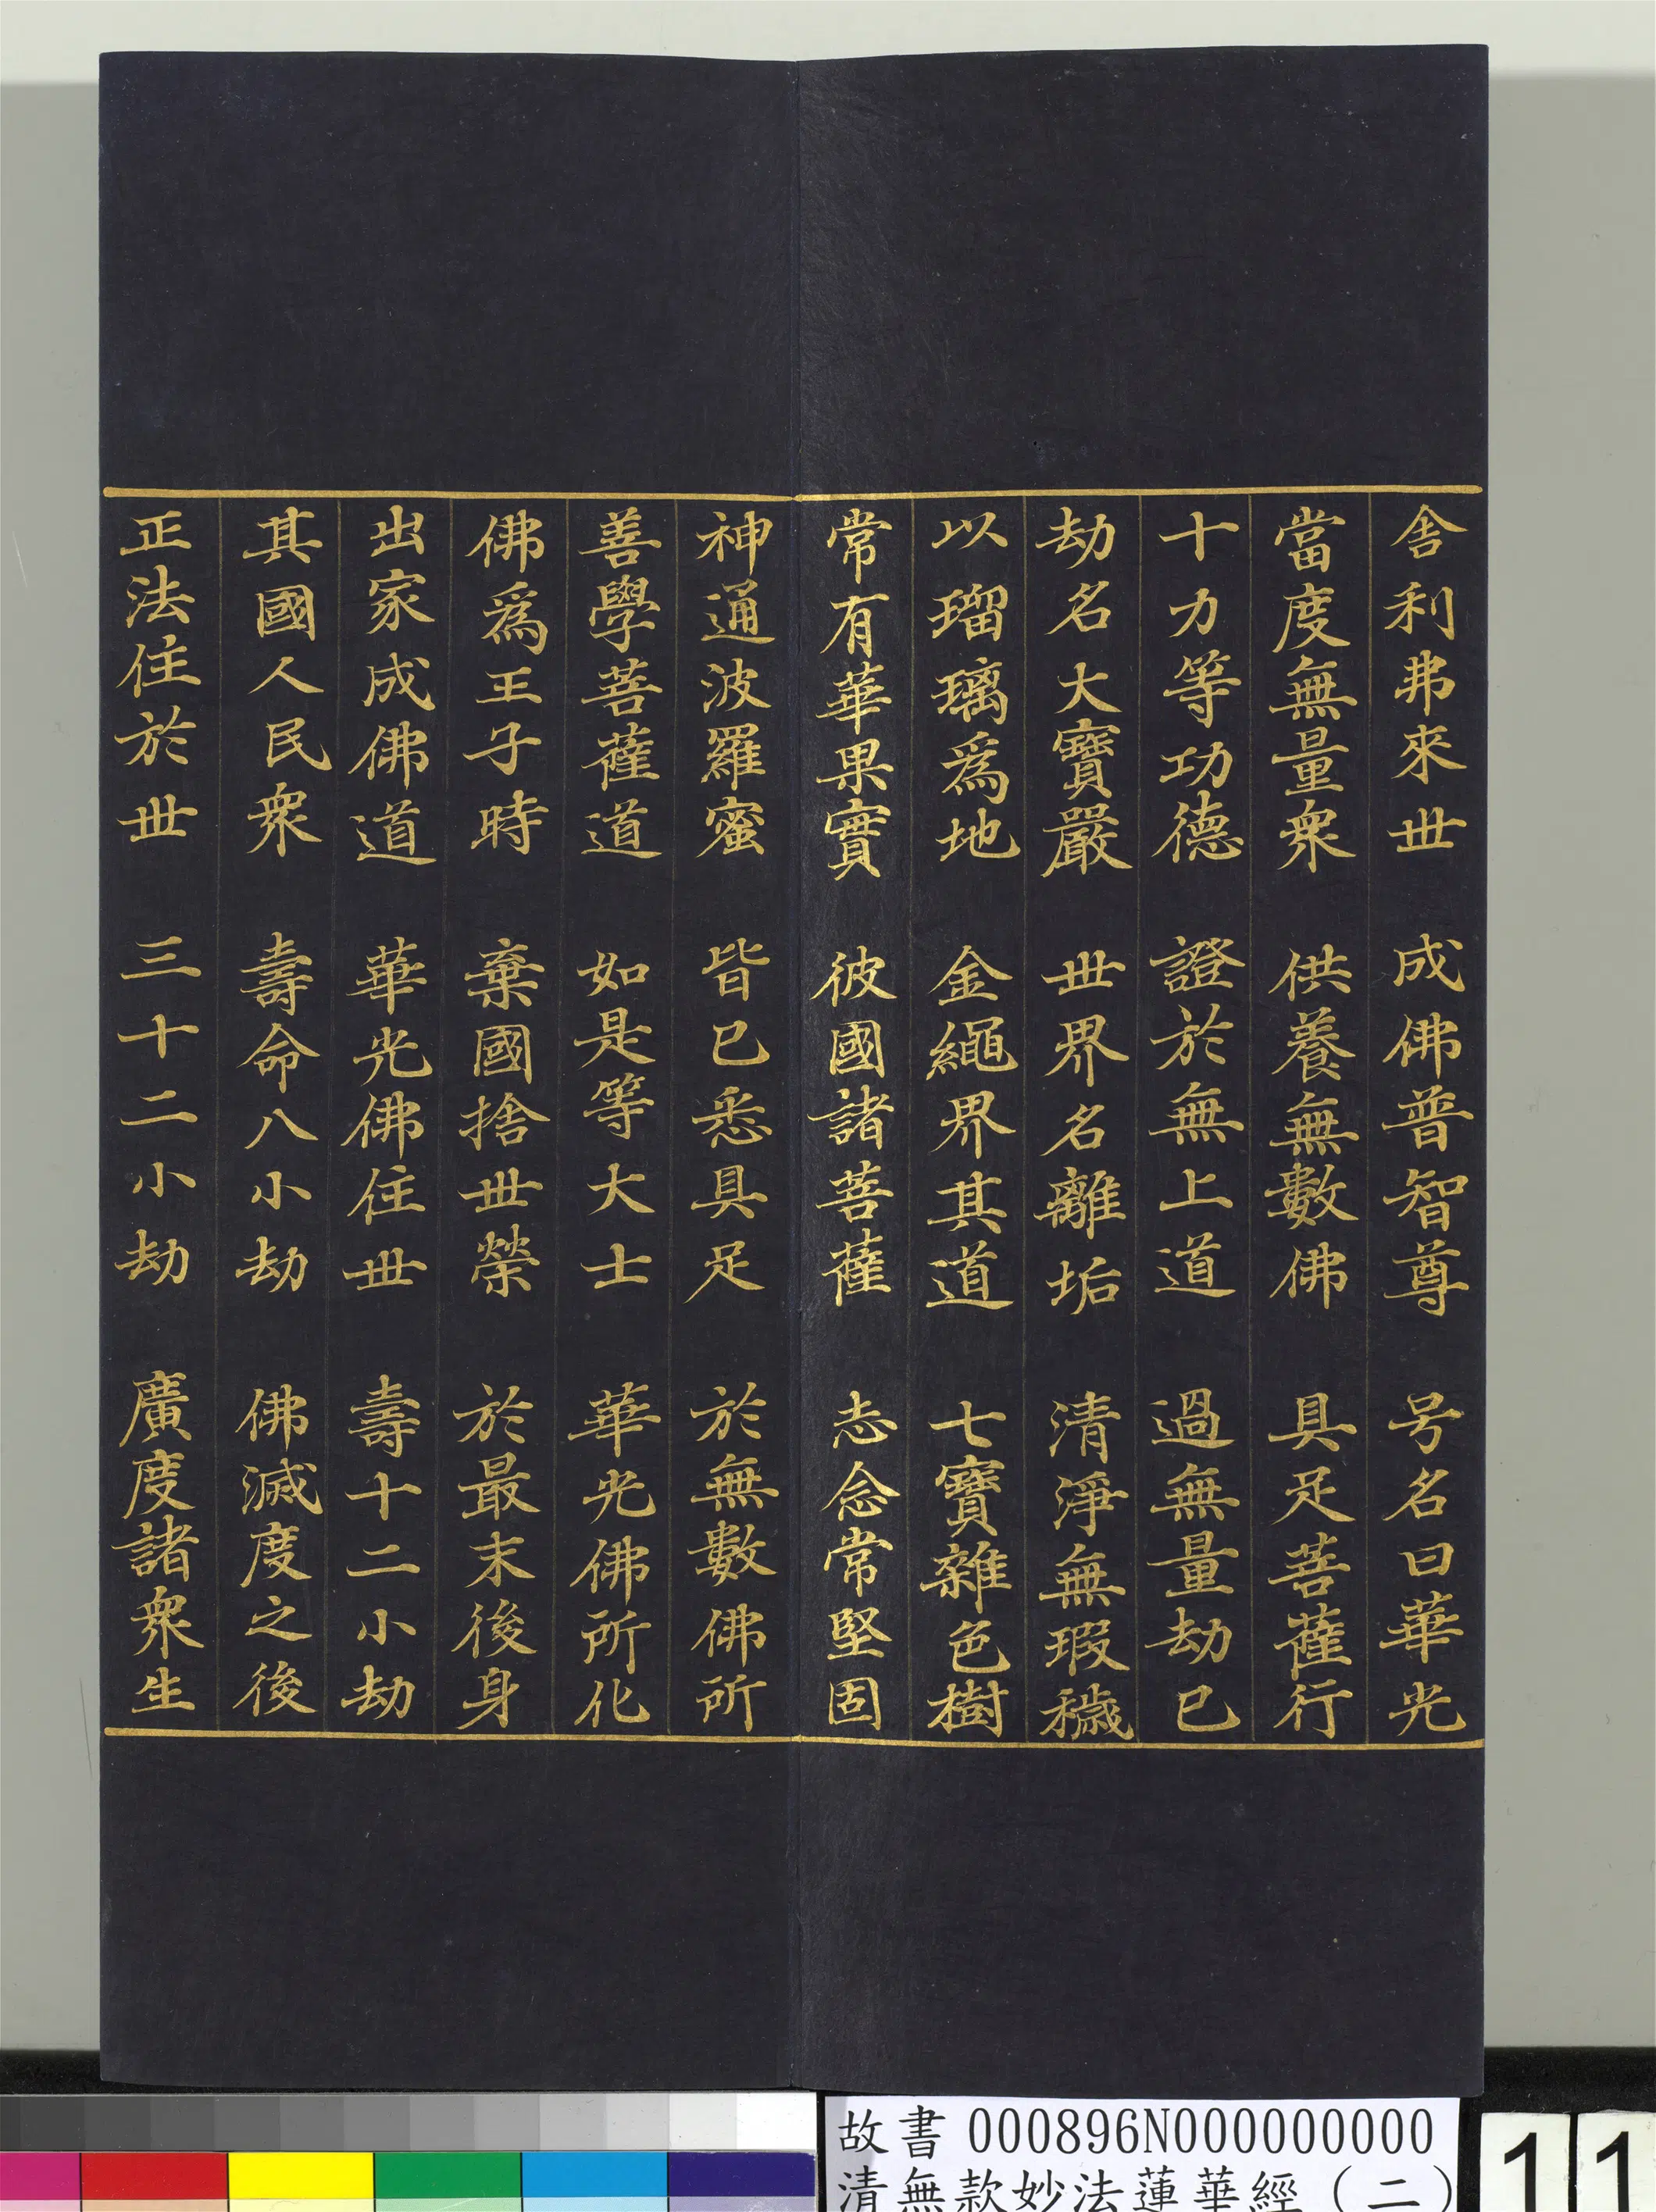 舎利弗來丗　成佛普智尊　号名曰華光
當度無量衆　供養無數佛　具足菩薩行
十力等功德　證於無上道　過無量劫已
劫名大寶嚴　丗界名離垢　清淨無瑕穢
以瑠璃爲地　金繩界其道　七寶雜色樹
常有華果實　彼國諸菩薩　志念常堅固
神通波羅蜜　皆已悉具足　於無數佛所
善學菩薩道　如是等大士　華光佛所化
佛爲王子時　棄國捨丗榮　於最末後身
出家成佛道　華光佛住丗　壽十二小劫
其國人民衆　壽命八小劫　佛滅度之後
正法住於丗　三十二小劫　廣度諸衆生
故書 000896N000000000
清無款妙法蓮華經（二）
11